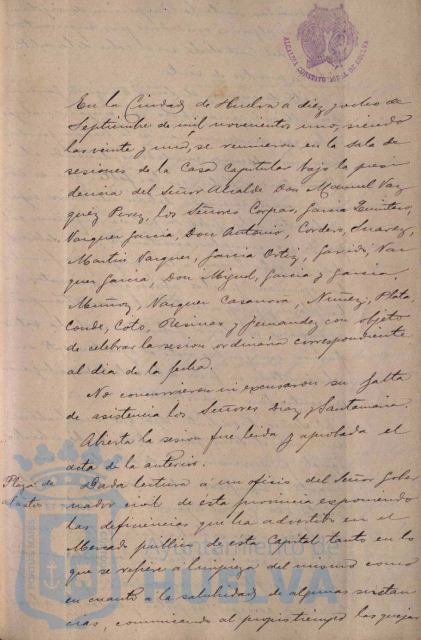 ALCALDIA CONSTITUCIONAL DE HUELVA
En la Ciudad de Huelva a diez y ocho de
Septiembre de mil novecientos uno, siendo
las veinte y una, se reunieron en la sala de
sesiones de la Casa Capitular bajo la presi
dencia del Señor Alcalde Don Manuel Vaz
quez Perez, los Señores Corpas, Garcia Quintero,
Vazquez Garcia, Don Antonio, Cordero, Suarez,
Martin Vazquez, Garcia Ortiz, Garrido, Vaz
quez Garcia, Don Miguel, Garcia y Garcia,
Muñoz, Vazquez Casanova, Nuñez, Plata,
Conde, Coto, Resinas y Fernandez, con objeto
de celebrar la sesion ordinaria correspondiente
al dia de la fecha.
No concurrieron ni excusaron su falta
de asistencia los Señores Diaz y Santamaria.
Abierta la sesion fué leida y aprobada el
acta de la anterior.
Plaza de
abastos
Dada lectura a un oficio del Señor Gober
nador civil de ésta provincia exponiendo
las deficiencias que ha advertido en el
Mercado publico de esta Capital tanto en lo
que se refiere a limpieza del mismo como
en cuanto a la salubridad de algunas sustan
cias, comunicando al propio tiempo las quejas
Ayuntamiento de
HUELVA